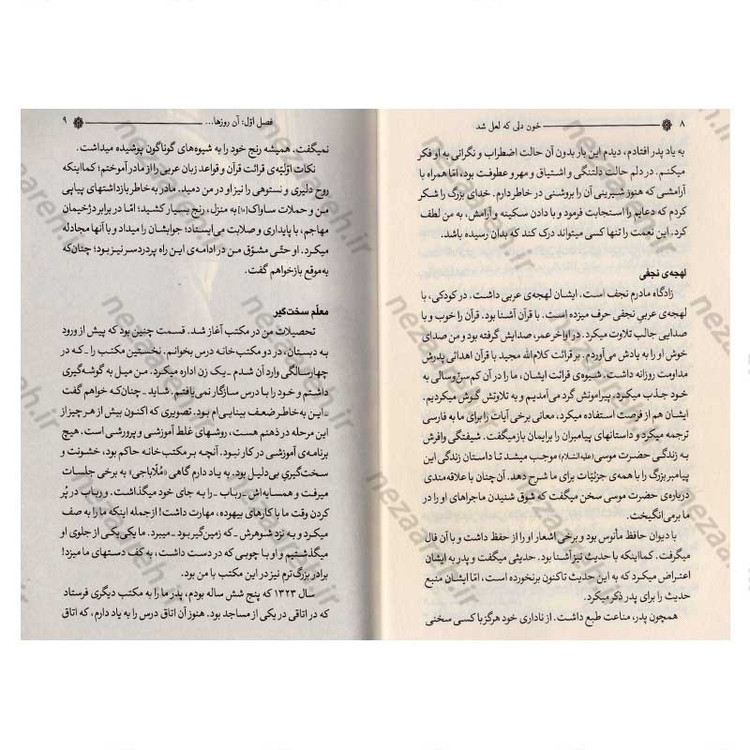 ۸ خون دلی که لعل شد
به یاد پدر افتادم، دیدم این بار بدون آن حالت اضطراب و نگرانی به او فکر
میکنم. در دلم حالت دلتنگی و اشتیاق و مهر و عطوفت بود، امّا همراه با
آرامشی که هنوز شیرینی آن را بروشنی در خاطر دارم. خدای بزرگ را شکر
کردم که دعایم را استجابت فرمود و با دادن سکینه و آرامش، به من لطف
کرد. این نعمت را تنها کسی میتواند درک کند که بدان رسیده باشد.
لهجه‌ی نجفی
زادگاه مادرم نجف است. ایشان لهجه‌ی عربی داشت. در کودکی، با
لهجه‌ی عربیِ نجفی حرف میزده است. با قرآن آشنا بود. قرآن را خوب و با
صدایی جالب تلاوت میکرد. در اواخر عمر، صدایش گرفته بود و من صدای
خوش او را به یادش می‌آوردم. بر قرائت کلام‌الله مجید با قرآن اهدائی پدرش
مداومت روزانه داشت. شیوه‌ی قرائت ایشان، ما را در آن کم‌سن‌وسالی به
خود جذب میکرد، پیرامونش گرد می‌آمدیم و به تلاوتش گوش میکردیم.
ایشان هم از فرصت استفاده میکرد، معانی برخی آیات را برای ما به فارسی
ترجمه میکرد و داستانهای پیامبران را برایمان بازمیگفت. شیفتگی وافرش
به زندگی حضرت موسی (علیه‌السّلام) موجب میشد تا داستان زندگی این
پیامبر بزرگ را با همه‌ی جزئیّات برای ما شرح دهد. آن‌چنان با علاقه‌مندی
درباره‌ی حضرت موسی سخن میگفت که شوق شنیدن ماجراهای او را در
ما برمی‌انگیخت.
با دیوان حافظ مأنوس بود و برخی اشعار او را از حفظ داشت و با آن فال
میگرفت. کمااینکه با حدیث نیز آشنا بود. حدیثی میگفت و پدر به ایشان
اعتراض میکرد که به این حدیث تاکنون برنخورده است، امّا ایشان منبع
حدیث را برای پدر ذکر میکرد.
همچون پدر، مناعت طبع داشت. از ناداری خود هرگز با کسی سخنی
فصل اوّل: آن روزها... ۹
نمیگفت. همیشه رنج خود را به شیوه‌های گوناگون پوشیده میداشت.
نکات اوّلیّه‌ی قرائت قرآن و قواعد زبان عربی را از مادر آموختم؛ کمااینکه
روح دلیری و نستوهی را نیز او در من دمید. مادر به خاطر بازداشتهای پیاپی
من و حملات ساواک[۱۰] به منزل، رنج بسیار کشید؛ امّا در برابر دژخیمان
مهاجم، با پایداری و صلابت می‌ایستاد؛ جوابشان را میداد و با آنها مجادله
میکرد. او حتّی مشوّق من در ادامه‌ی این راه پردردسر نیز بود؛ چنان‌که
به‌موقع بازخواهم گفت.
معلّم سخت‌گیر
تحصیلات من در مکتب آغاز شد. قسمت چنین بود که پیش از ورود
به دبستان، در دو مکتب‌خانه درس بخوانم. نخستین مکتب را ـ که در
چهارسالگی وارد آن شدم ـ یک زن اداره میکرد. من میل به گوشه‌گیری
داشتم و خود را با درس سازگار نمی‌یافتم. شاید ـ چنان‌که خواهم گفت
ـ این به‌خاطر ضعف بینایی‌ام بود. تصویری که اکنون بیش از هر چیز از
این مرحله در ذهنم هست، روشهای غلط آموزشی و پرورشی است. هیچ
برنامه‌ی آموزشی در کار نبود. آنچه بر مکتب‌خانه حاکم بود، خشونت و
سخت‌گیریِ بی‌دلیل بود. به یاد دارم گاهی «مُلّاباجی» به برخی جلسات
میرفت و همسایه‌اش ـ رباب ـ را به جای خود میگذاشت. و رباب در پُر
کردن وقت ما با کارهای بیهوده، مهارت داشت! ازجمله اینکه ما را به صف
میکرد و به نزد شوهرش ـ که زمین‌گیر بود ـ میبرد. ما یکی‌یکی از جلوی او
میگذشتیم و او با چوبی که در دست داشت، به کف دستهای ما میزد!
برادر بزرگ‌ترم نیز در این مکتب با من بود.
سال ۱۳۲۳ که پنج شش ساله بودم، پدر ما را به مکتب دیگری فرستاد
که در اتاقی در یکی از مساجد بود. هنوز آن اتاق درس را به یاد دارم، که اتاق
nezaareh.ir